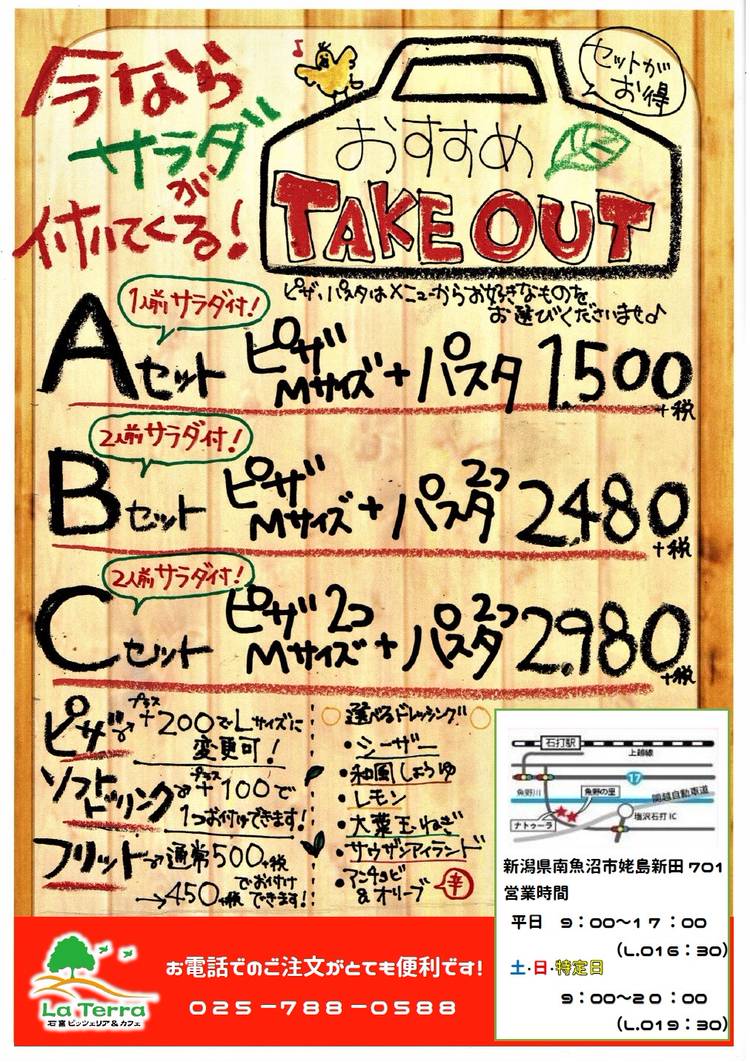 今なら
サラダが
付いてくる！
セットが
お得
おすすめ
TAKE OUT
ピザ、パスタはメニューからお好きなものを
お選びくださいませ♪
1人前サラダ付！
Aセット ピザ Mサイズ + パスタ 1.500 +税
2人前サラダ付！
Bセット ピザ Mサイズ + パスタ 2つ 2480 +税
2人前サラダ付！
Cセット ピザ 2つ Mサイズ + パスタ 2つ 2.980 +税
ピザ→ プラス +200でLサイズに
変更可！
ソフト
ドリンク プラス +100で
1つお付けできます！
フリット→通常500+税
→450+税でお付けできます！
選べるドレッシング
・シーザー
・和風しょうゆ
・レモン
・大葉玉ねぎ
・サウザンアイランド
・アンチョビ
&オリーブ 辛
石打駅
上越線
17
魚野川
魚野の里
関越自動車道
ナトゥーラ
塩沢石打IC
新潟県南魚沼市姥島新田701
営業時間
平日 9：00～17：00
（L.O16：30）
土・日・特定日
9：00～20：00
（L.O19：30）
La Terra
石窯ピッツェリア＆カフェ
お電話でのご注文がとても便利です！
025－788－0588